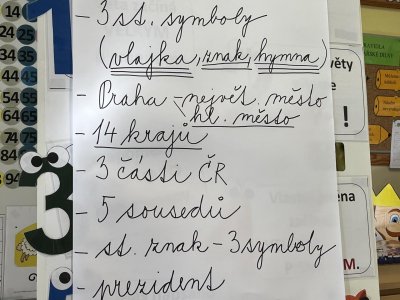 - 3 st. symboly
(vlajka, znak, hymna)
- Praha - největ. město
hl. město
- 14 krajů
- 3 části ČR
- 5 sousedů
- st. znak - 3 symboly
- prezident
14
24 25
34 35
44 45
54 55
64 65
74 75
84 85
94
1
3
věty
!
PRAVIDLA
M.